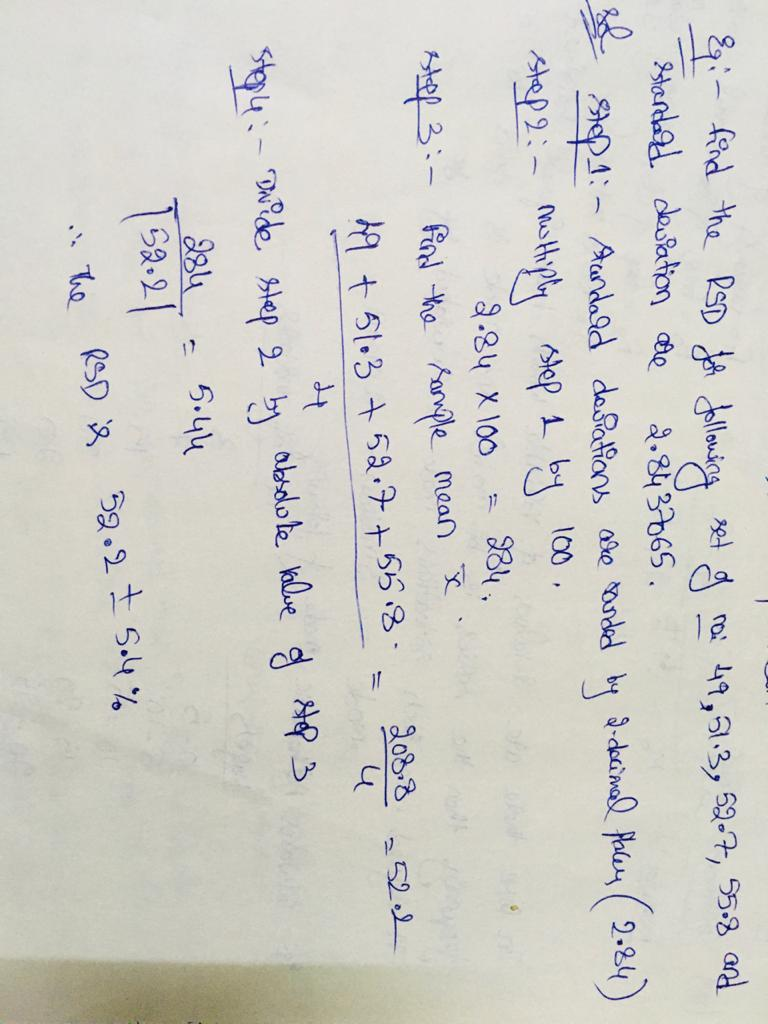 Eg:- find the RSD for following set of no: 49, 51.3, 52.7, 55.8 and
standard deviation are 2.8437065.
Sol Step 1:- Standard deviations are rounded by 2-decimal places (2.84)
Step 2:- multiply step 1 by 100.
2.84 × 100 = 284.
Step 3:- find the sample mean x̄.
49 + 51.3 + 52.7 + 55.8. / 4 = 208.8 / 4 = 52.2
Step 4:- Divide step 2 by absolute value of step 3
284 / |52.2| = 5.44
∴ The RSD is 52.2 ± 5.4%